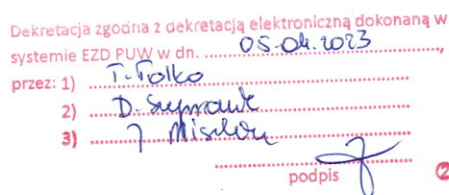 Dekretacja zgodna z dekretacją elektroniczną dokonaną w
systemie EZD PUW w dn. 05-04.2023
przez: 1) T. Folko
2) D.
3)
podpis
2